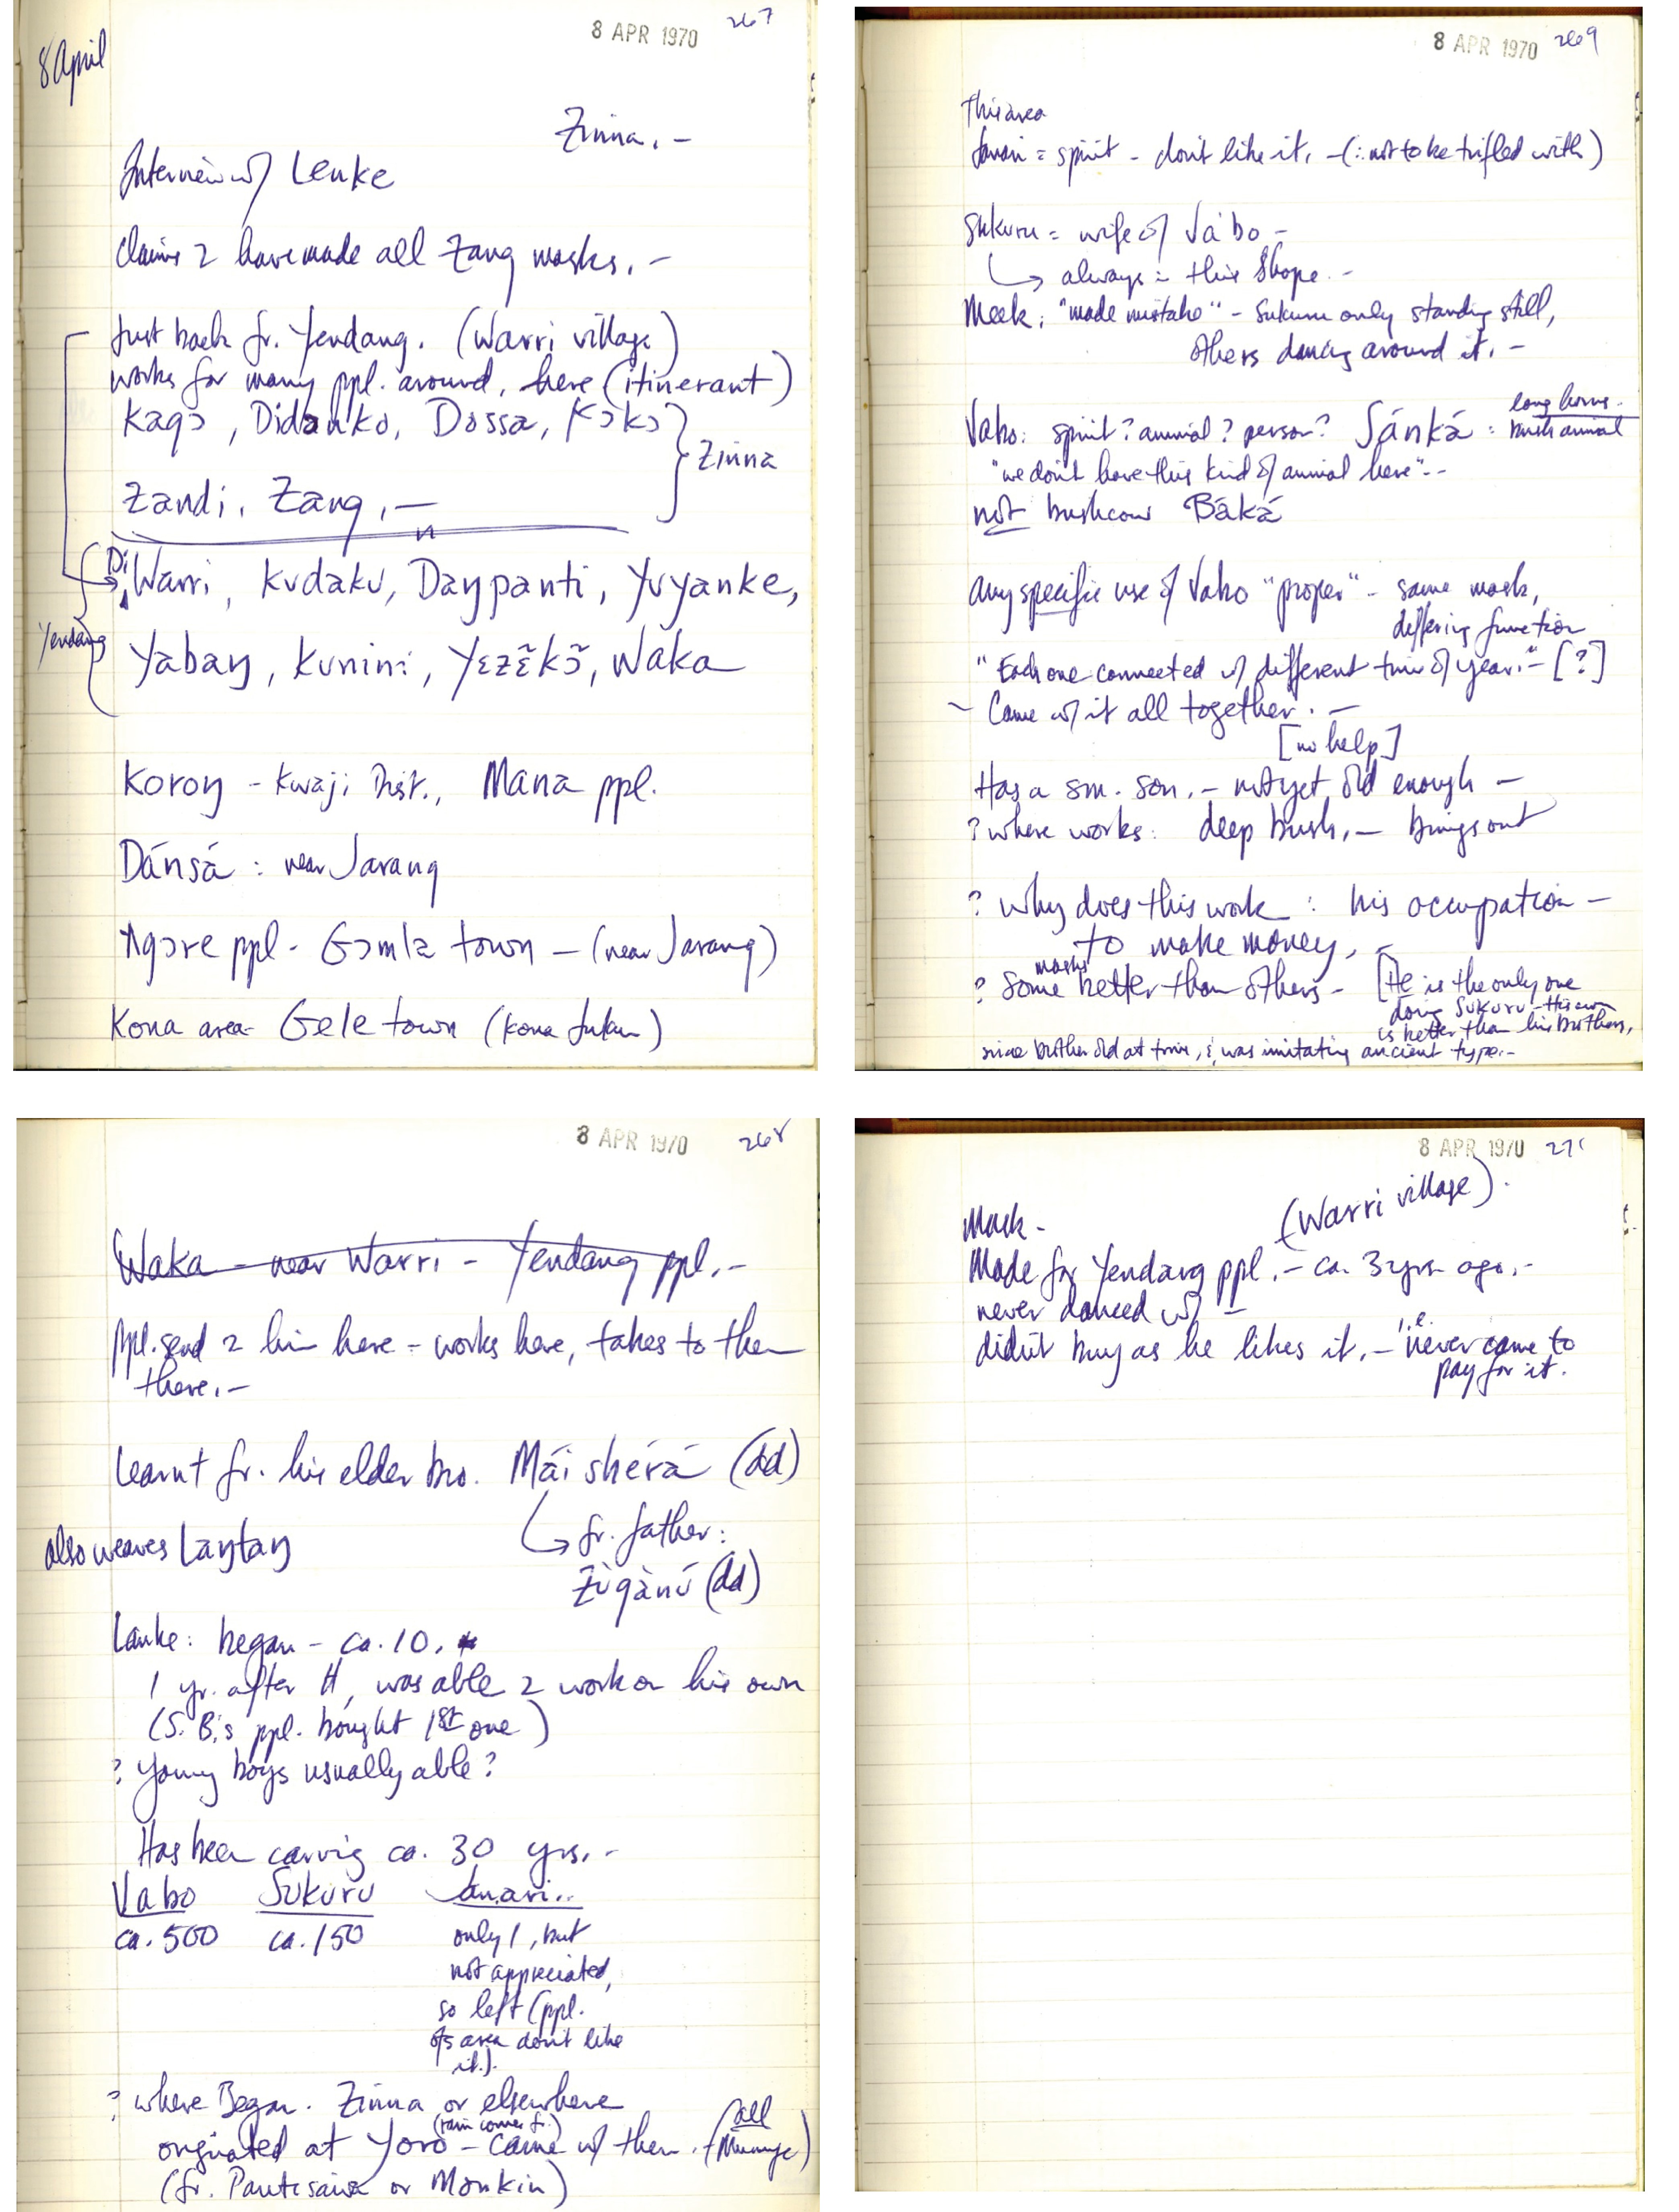 8 APR 1970 267
8 April
Zinna. –
Interview w/ Lenke
Claims 2 have made all Zang masks. –
Just back fr. Yendang. (Warri village)
works for many ppl. around, here (itinerant)
Kagɔ, Didanko, Dɔssa, Kɔkɔ
Zinna
Zandi, Zang, –
Di
Warri, Kʊdakʊ, Daŋpanti, Yʊyanke,
Yendang
Yabaŋ, Kʊnini, Yɛzɛ̃kɔ̃, Waka
Koroŋ – Kwaji Dist., Mana ppl.
Dánsá : near Jarang
Ngɔre ppl – Gɔmla town – (near Jarang)
Kona area – Gele town (Kona Jukun)
8 APR 1970 268
Waka – near Warri – Yendang ppl. –
Ppl. send 2 him here – works here, takes to them
there. –
Learnt fr. his elder bro. Máishérá (dd)
fr. father:
also weaves Laŋtaŋ
Zùgànú (dd)
Lanke: began – ca. 10.
1 yr. after tt, was able 2 work on his own
(S. B.'s ppl. bought 1st one)
? Young boys usually able?
Has been carving ca. 30 yrs. –
Vabo Sukuru Janari..
ca. 500 ca. 150 only 1, but
not appreciated,
so left (ppl.
of area don't like
it.).
? where Began. Zinna or elsewhere
(rain comes fr.)
originated at Yoro – came w/ them. (all Mumuye)
(fr. Pantisawa or Monkin)
8 APR 1970 269
This area
Janari = spirit – don't like it. – (∴ not to be trifled with)
Sukuru = wife of Vabo –
always = this shape. –
Meek: "made mistake" – Sukuru only standing still,
others dancing around it. –
long horns.
Vabo: spirit? animal? person? Sánká : bush animal
"we don't have this kind of animal here" –
not bushcow Báká
Any specific use of Vabo "proper" – same mask,
differing function
"Each one connected w/ different time of year." – [?]
– Came w/ it all together. –
[no help]
Has a sm. son. – not yet old enough –
? where works: deep bush, – brings out
? why does this work : his occupation –
to make money, –
masks
? Some better than others – [He is the only one
doing Sukuru – His own
is better than his brothers,
since brother old at time, & was imitating ancient type. –
8 APR 1970 27
(Warri village).
Mask –
Made for Yendang ppl. – ca. 3 yrs ago. –
never danced w/ –
i.e.
didn't buy as he likes it. – never came to
pay for it.